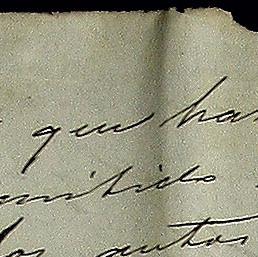 que han
mitido
los autos